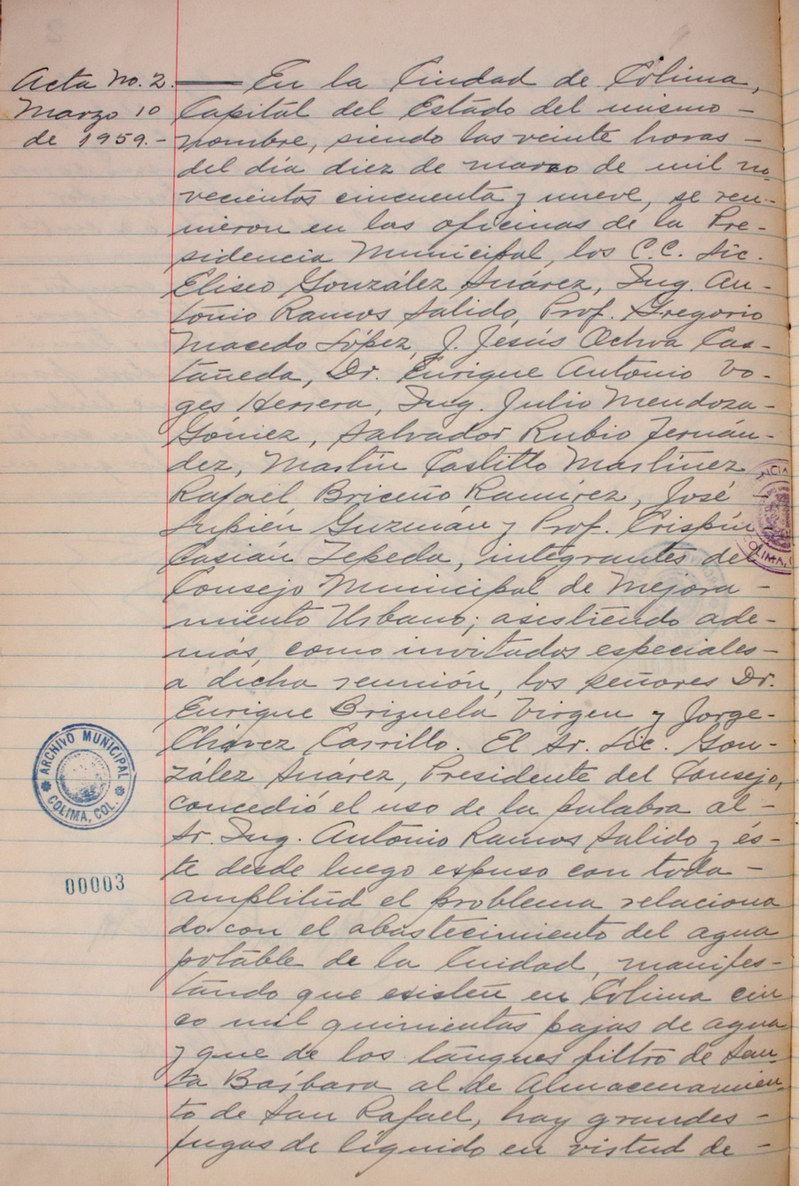 Acta No. 2.
Marzo 10
de 1959.-
—— En la Ciudad de Colima,
Capital del Estado del mismo -
nombre, siendo las veinte horas -
del día diez de marzo de mil no
vecientos cincuenta y nueve, se reu-
nieron en las oficinas de la Pre-
sidencia Municipal, los C.C. Lic.
Eliseo González Suárez, Ing. An-
tonio Ramos Salido, Prof. Gregorio
Macedo López, J. Jesús Ochoa Cas-
tañeda, Dr. Enrique Antonio Vo-
ges Herrera, Ing. Julio Mendoza -
Gómez, Salvador Rubio Fernán-
dez, Martín Castillo Martínez
Rafael Briceño Ramírez, José
Lupién Guzmán y Prof. Crispín
Casián Zepeda, integrantes del
Consejo Municipal de Mejora -
miento Urbano; asistiendo ade-
más, como invitados especiales -
a dicha reunión, los señores Dr.
Enrique Brizuela Virgen y Jorge -
Chávez Carrillo. El Sr. Lic. Gon-
zález Suárez, Presidente del Consejo,
concedió el uso de la palabra al -
Sr. Ing. Antonio Ramos Salido y és-
te desde luego expuso con toda -
amplitud el problema relaciona
do con el abastecimiento del agua
potable de la Ciudad, manifes-
tando que existen en Colima cin
co mil quinientas pajas de agua
y que de los tanques filtro de San
ta Bárbara al de Almacenamien-
to de San Rafael, hay grandes -
fugas de líquido en virtud de -
ARCHIVO MUNICIPAL
COLIMA, COL.
00003
COLIMA,